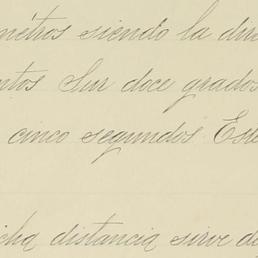 metros siendo la
Sur doce grados
cinco segundos Este
distancia sirve de